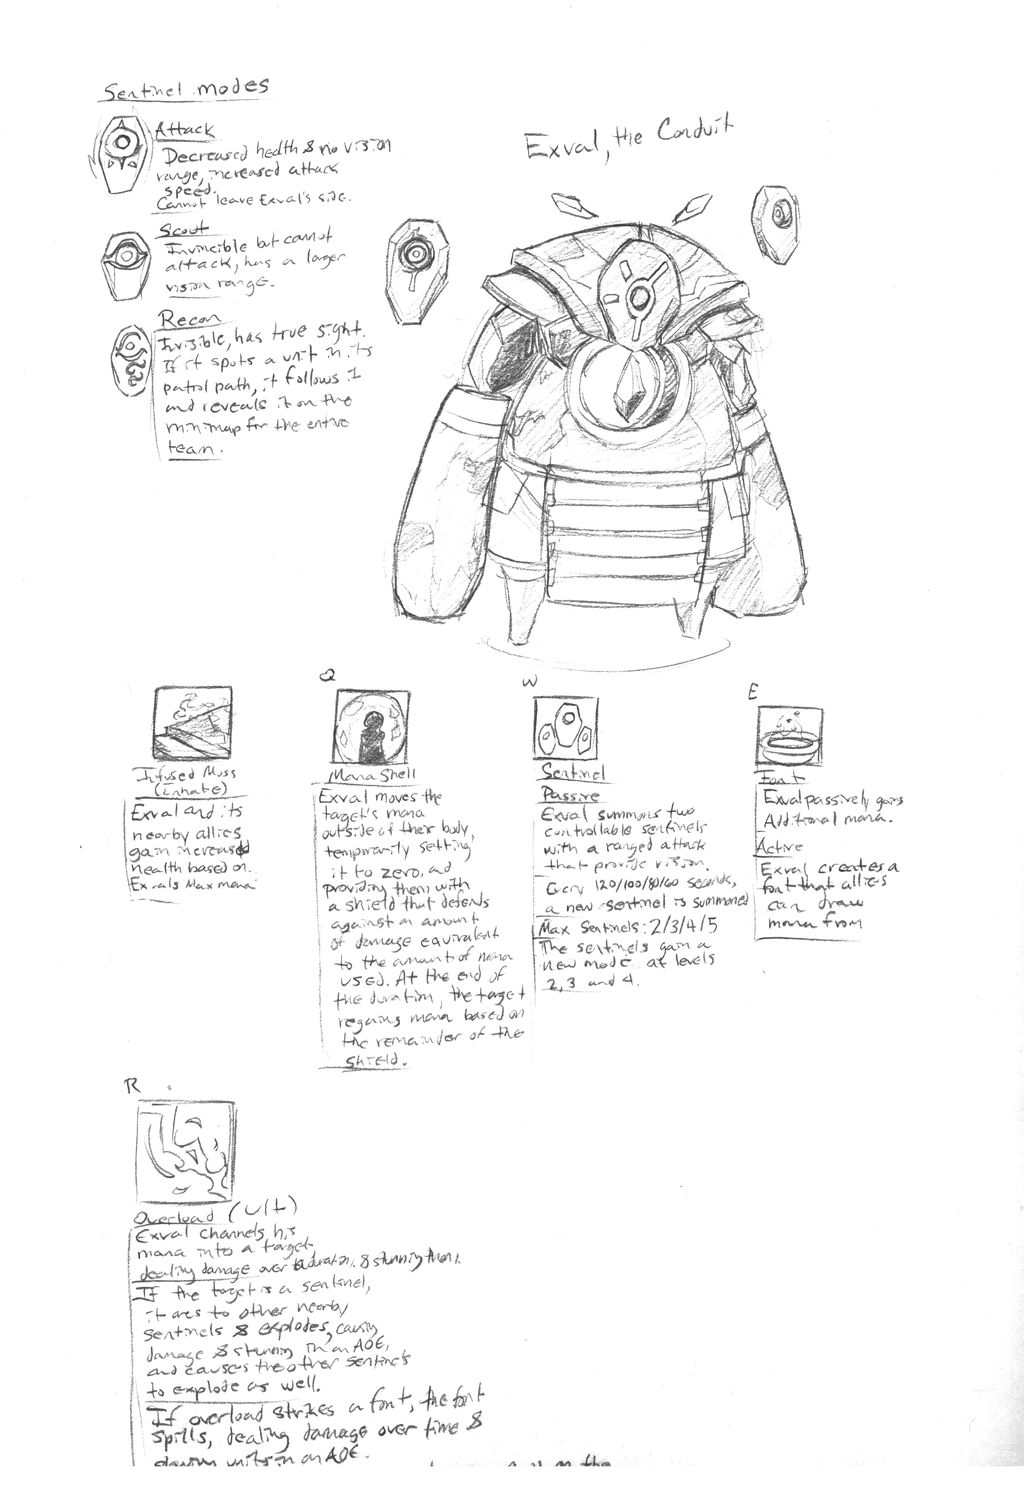 Sentinel modes
Attack
Decreased health & no vision
range, increased attack
speed.
Cannot leave Exval's side.
Scout
Invincible but cannot
attack, has a larger
vision range.
Recon
Invisible, has true sight.
If it spots a unit in its
patrol path, it follows it
and reveals it on the
minimap for the entire
team.
Exval, the Conduit
Infused Moss
(innate)
Exval and its
nearby allies
gain increased
health based on
Exvals Max mana
Q
Mana Shell
Exval moves the
target's mana
outside of their body,
temporarily setting
it to zero, and
providing them with
a shield that defends
against an amount
of damage equivalent
to the amount of mana
used. At the end of
the duration, the target
regains mana based on
the remainder of the
shield.
W
Sentinel
Passive
Exval summons two
controllable sentinels
with a ranged attack
that provide vision.
Every 120/100/80/60 seconds,
a new sentinel is summoned
Max Sentinels: 2/3/4/5
The sentinels gain a
new mode at levels
2, 3 and 4.
E
Font
Exval passively gains
Additional mana.
Active
Exval creates a
font that allies
can draw
mana from
R
Overload (ult)
Exval channels his
mana into a target
dealing damage over duration & stunning them.
If the target is a sentinel,
it arcs to other nearby
sentinels & explodes, causing
damage & stunning in an AOE,
and causes the other sentinels
to explode as well.
If overload strikes a font, the font
spills, dealing damage over time &
slowing units in an AOE.